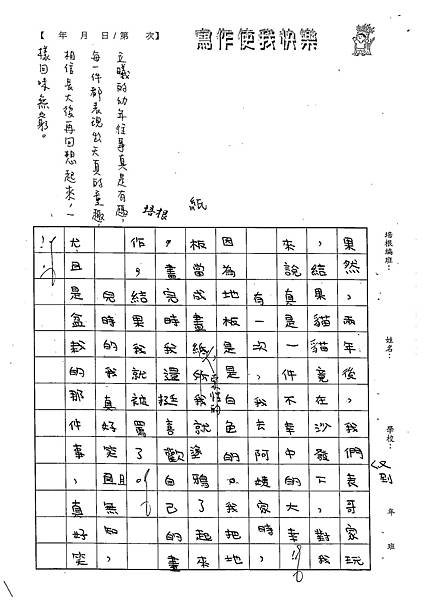 【　年　月　日/第　次】
寫作使我快樂
立曦的幼年往事真是有趣，
每一件都表現出天真的童趣，
相信長大後再回想起來，一
樣回味無窮。
培根　紙
培根編班：
姓名：
學校：
年　班
果然，兩年後，我們又到表哥家玩
，結果，貓竟在沙發下，對我
來說真是一件不幸中的大幸!!
有一次，我去阿姨家時，
因為地板是白色的，我把地
板當成畫紙，所以我就塗鴉了起來
，畫完時我還挺喜歡自己的畫
作，結果我就被罵了!!
兒時的我真好笑且無知，
尤且是盆栽的那件事，真好笑
!!